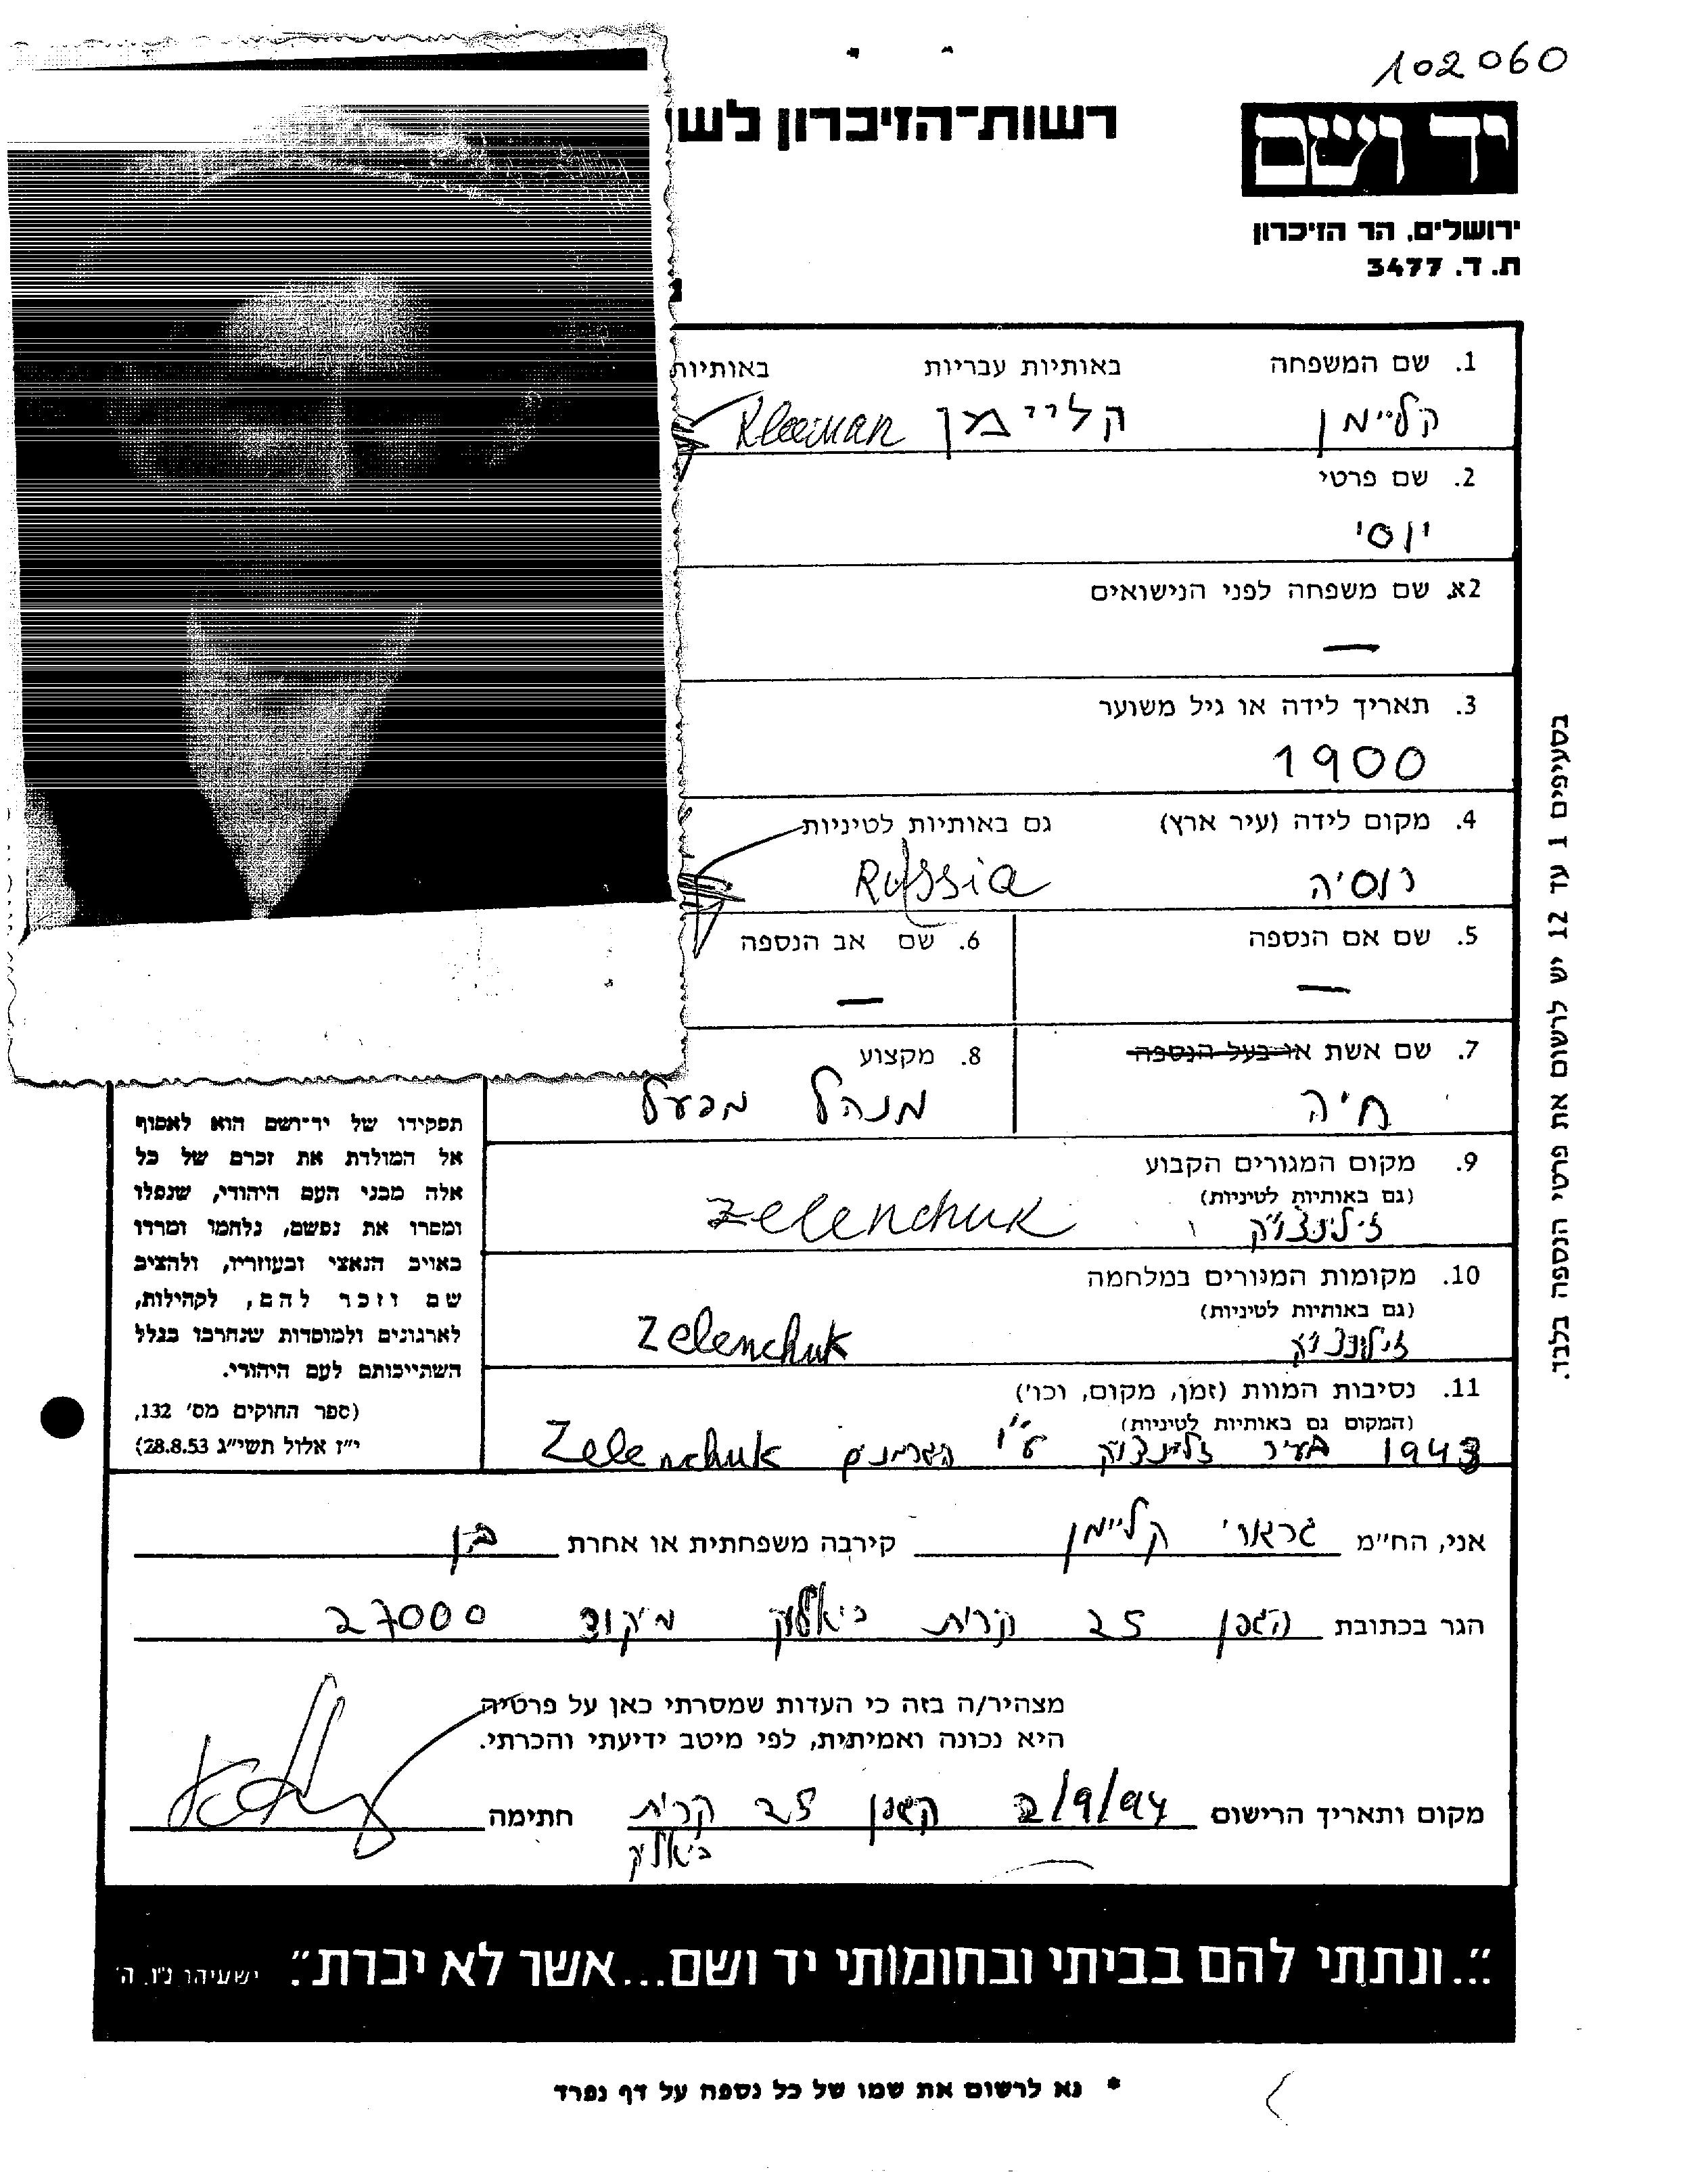 102060
רשות־הזיכרון לשו
יד ושם
ירושלים, הר הזיכרון
ת. ד. 3477
1. שם המשפחה באותיות עבריות באותיות
קליימן קליימן Kleeiman
2. שם פרטי
יוסי
2א. שם משפחה לפני הנישואים
—
3. תאריך לידה או גיל משוער
1900
4. מקום לידה (עיר ארץ) גם באותיות לטיניות
רוסיה Russia
5. שם אם הנספה 6. שם אב הנספה
— —
7. שם אשת או בעל הנספה 8. מקצוע
חיה מנהל מפעל
9. מקום המגורים הקבוע
(גם באותיות לטיניות)
זילינצ'וק zelenchuk
10. מקומות המגורים במלחמה
(גם באותיות לטיניות)
Zelenchuk
11. נסיבות המוות (זמן, מקום, וכו')
(המקום גם באותיות לטיניות)
1943 בעיר זלינצ'וק ע"י הגרמנים Zelenchuk
תפקידו של יד־ושם הוא לאסוף
אל המולדת את זכרם של כל
אלה מבני העם היהודי, שנפלו
ומסרו את נפשם, נלחמו ומרדו
באויב הנאצי ובעוזריו, ולהציב
שם וזכר להם, לקהילות,
לארגונים ולמוסדות שנחרבו בגלל
השתייכותם לעם היהודי.
(ספר החוקים מס' 132,
י"ז אלול תשי"ג 28.8.53)
בסעיפים 1 עד 12 יש לרשום את פרטי הנספה בלבד.
אני, הח"מ קליימן קירבה משפחתית או אחרת בן
הגר בכתובת הגפן 25 קרית ביאליק מיקוד 27000
מצהיר/ה בזה כי העדות שמסרתי כאן על פרטיה
היא נכונה ואמיתית, לפי מיטב ידיעתי והכרתי.
מקום ותאריך הרישום 2/9/94 הגפן 25 קרית חתימה
ביאליק
"...ונתתי להם בביתי ובחומותי יד ושם...אשר לא יכרת". ישעיהו נ"ו, ה'
* נא לרשום את שמו של כל נספה על דף נפרד